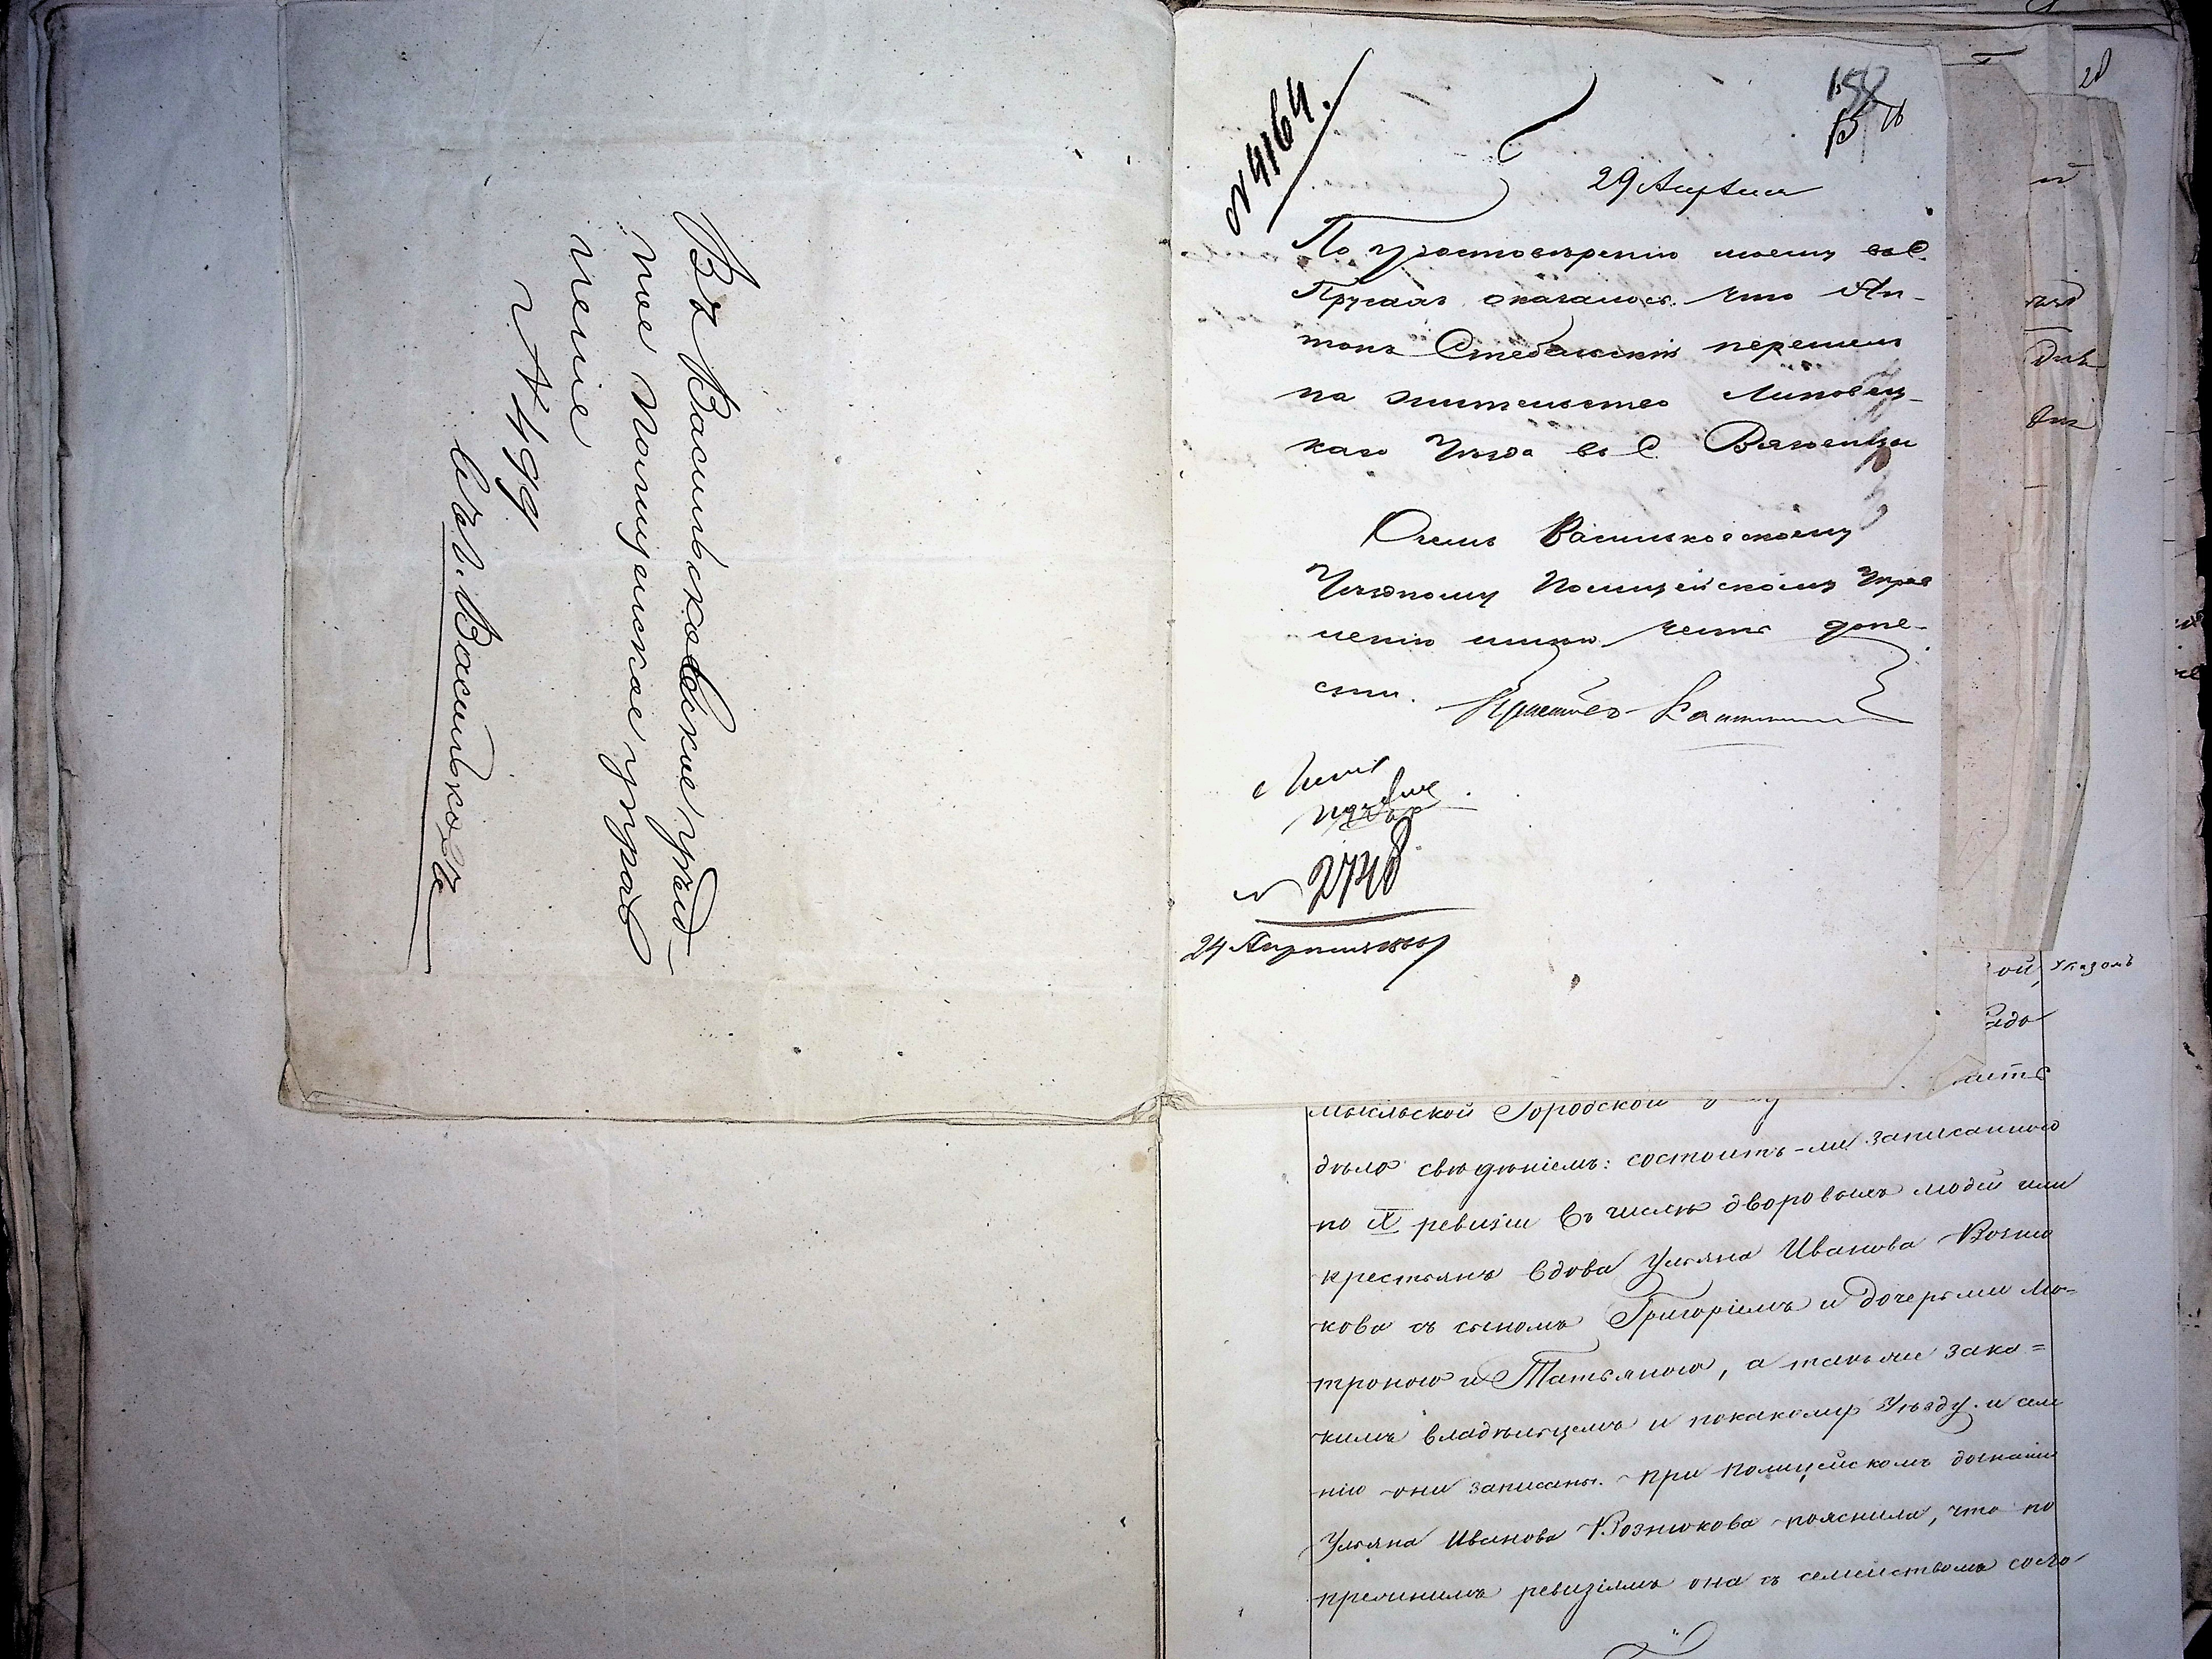 Въ Васильковское уѣзд-
ное полицейское управ
ленie
№ 499
Въ г. Васильковъ
№ 4164.
158
29 Апрѣля
По удостовѣренію моему въ С.
Прусахъ оказалось что Ан-
тонъ Стебельскій перешелъ
на жительство Липовец-
каго Уѣзда въ С
О чемъ Васильковскому
Уѣздному Полицейскому Управ
ленію имѣю честь доне-
сти.
№ 2748
24 Апрѣля
ой, Указомъ
мысльской Городской
дѣла свѣденіемъ: состоитъ-ли записанною
по IX ревизіи въ числѣ дворовыхъ людей или
крестьянъ вдова Ульяна Иванова Возню
кова съ сыномъ Григоріемъ и дочерьми Мо-
троною и Татьяною, а также зака=
кимъ владѣльцемъ и покакому Уѣзду и име
нію они записаны. При полицейскомъ дознаніи
Ульяна Иванова Вознюкова пояснила, что по
прежнимъ ревизіямъ она съ семействомъ состо